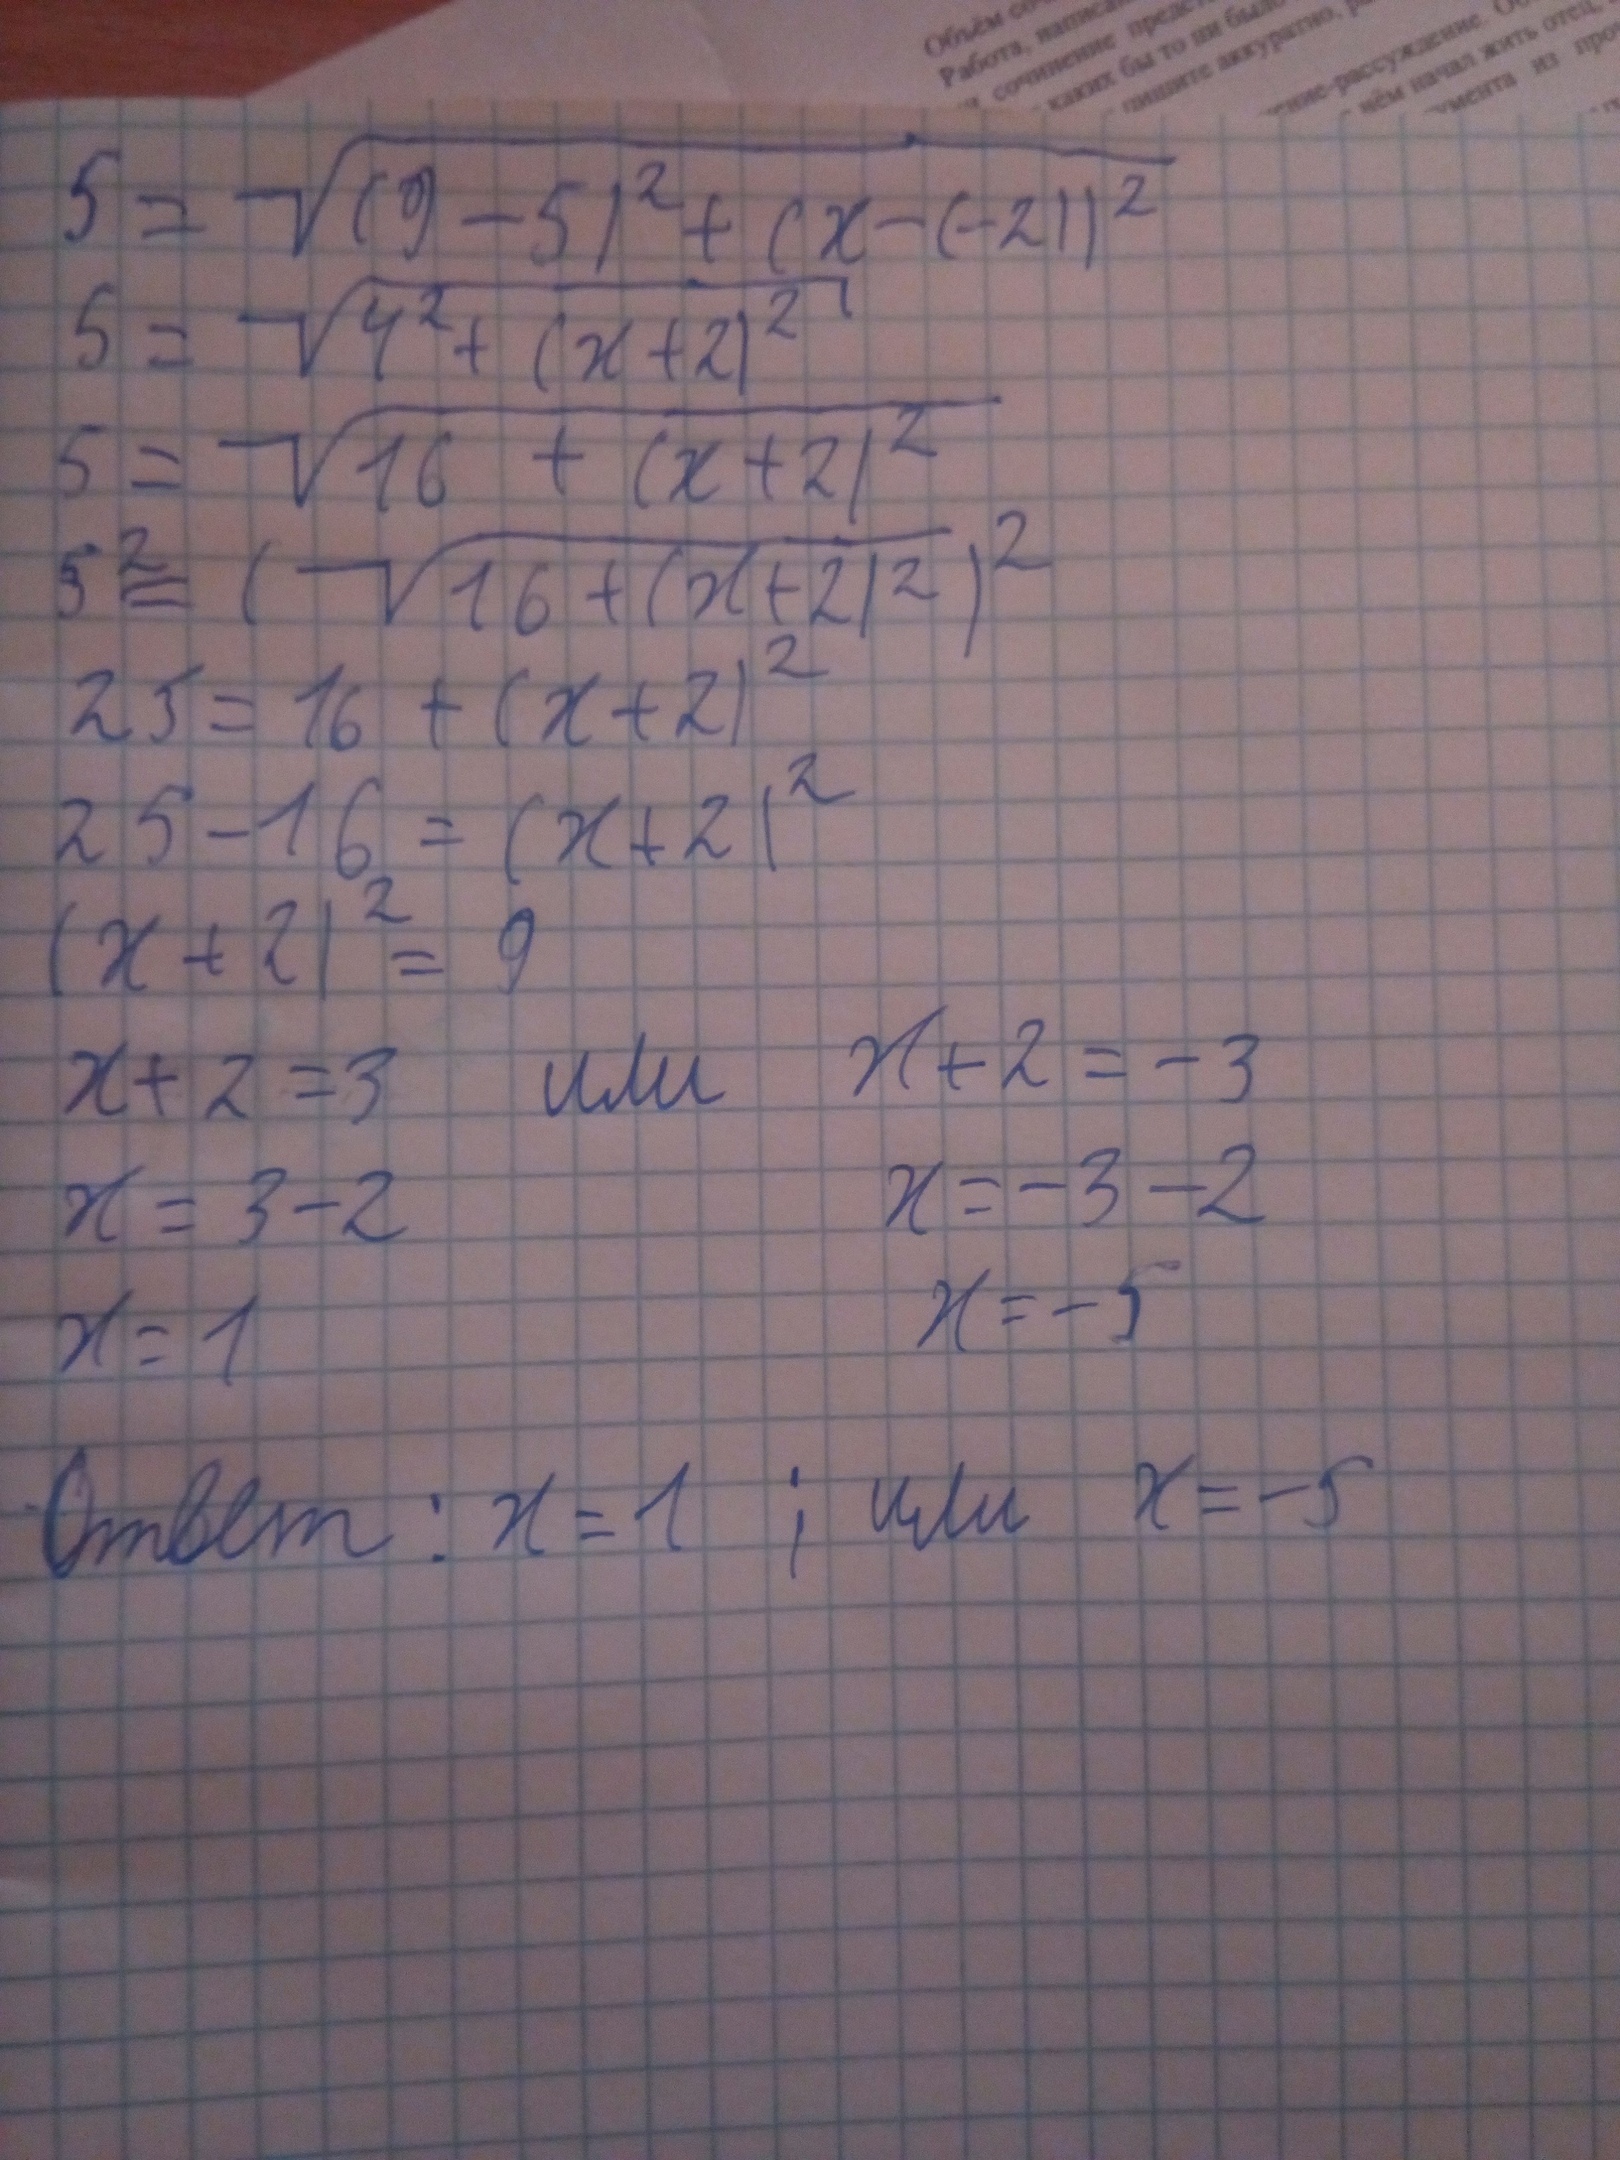 Объём соч
Работа, написан
сочинение предст
каких бы то ни было
пишите аккуратно, р
ние-рассуждение. О
нём начал жить отец,
умента из про
5 = √((9 - 5)² + (x - (-2))²)
5 = √(4² + (x + 2)²)
5 = √(16 + (x + 2)²)
5² = (√(16 + (x + 2)²))²
25 = 16 + (x + 2)²
25 - 16 = (x + 2)²
(x + 2)² = 9
x + 2 = 3 или x + 2 = -3
x = 3 - 2 x = -3 - 2
x = 1 x = -5
Ответ: x = 1 ; или x = -5